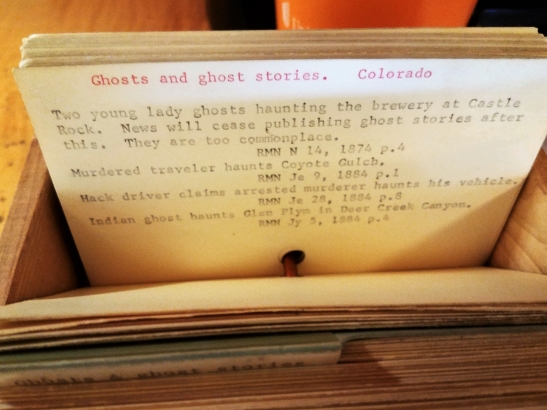 Ghosts and ghost stories. Colorado
Two young lady ghosts haunting the brewery at Castle
Rock. News will cease publishing ghost stories after
this. They are too commonplace.
RMN N 14, 1874 p.4
Murdered traveler haunts Coyote Gulch.
RMN Je 9, 1884 p.1
Hack driver claims arrested murderer haunts his vehicle.
RMN Je 28, 1884 p.8
Indian ghost haunts Glen Plym in Deer Creek Canyon.
RMN Jy 5, 1884 p.4
Ghosts & ghost stories